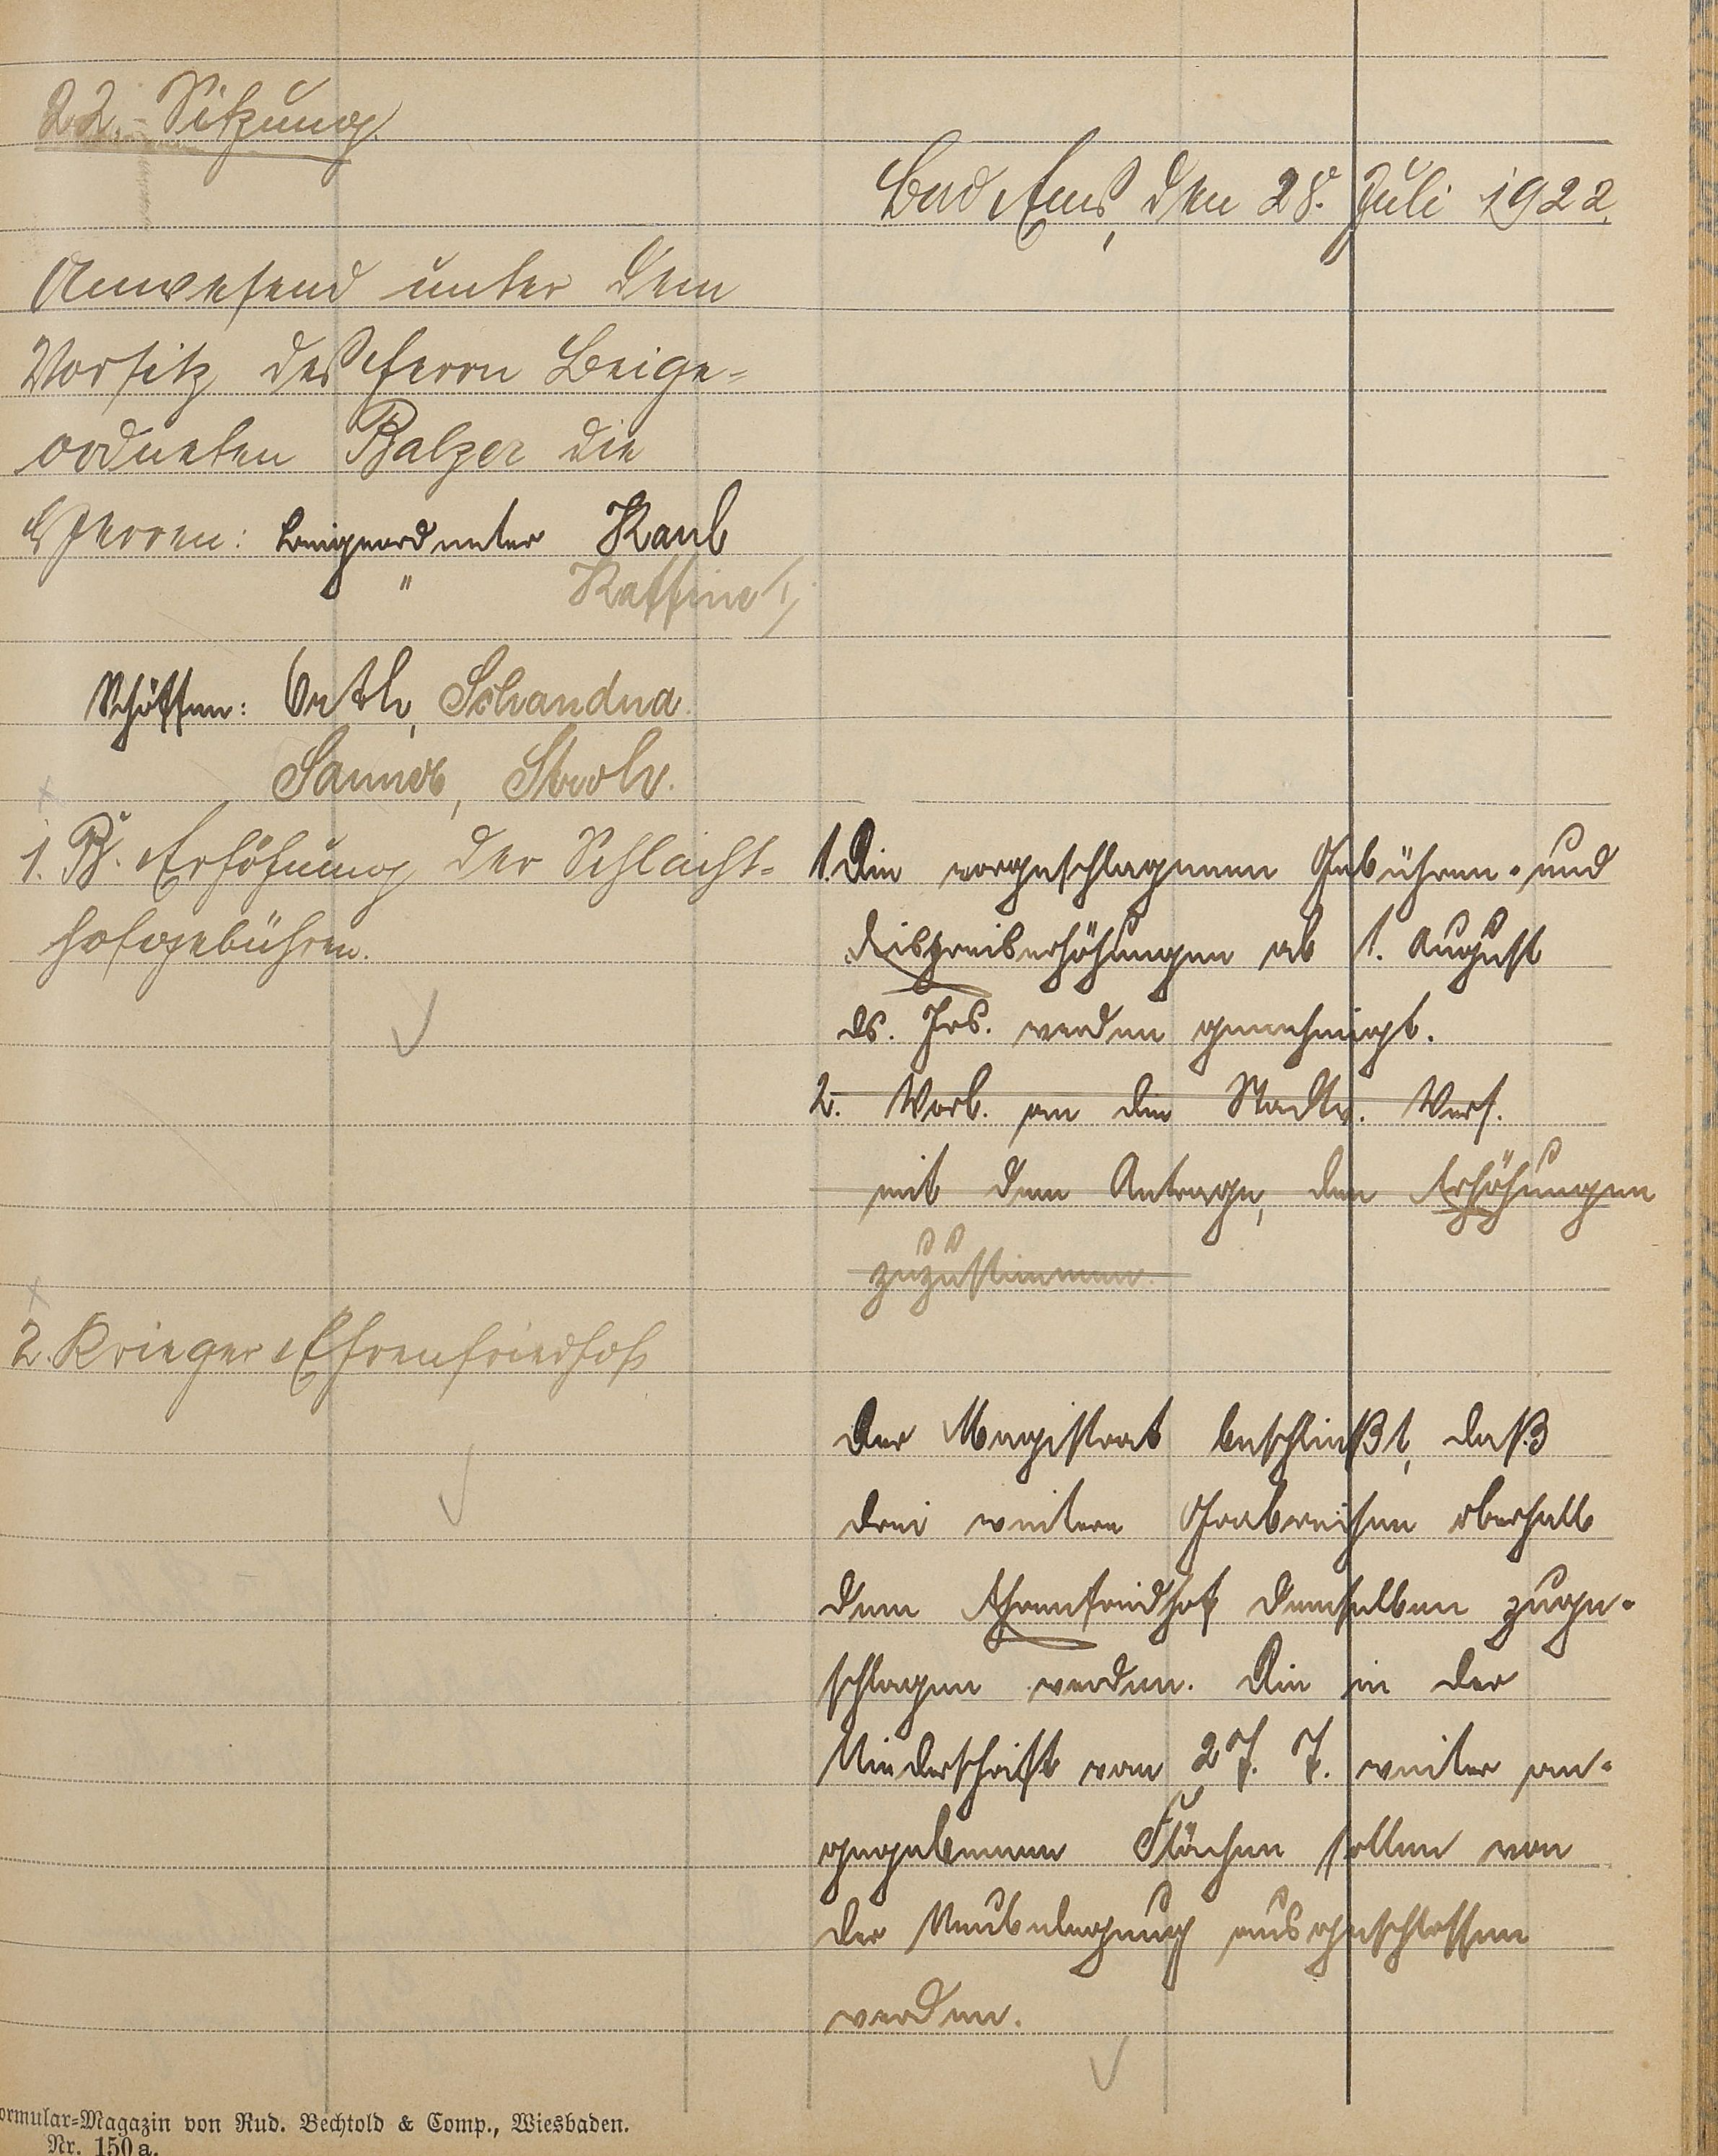 22. Sitzung.
Bad Ems, den 28. Juli 1922.
Anwesend unter dem
Vorsitz des Herrn Beige-
ordneten Balzer die
Herren: Beigeordneter Kaul
"
Schöffen: Orth, Schandua
Sanner, Stroh.
1. B. Erhöhung der Schlacht-
hofgebühren.
1. Die vorgeschlagenen Gebühren- und
Eispreiserhöhungen ab 1. August
ds. Jrs. werden genehmigt.
2. Vorl. an die Stadtv. Vers.
mit dem Antrage, den Erhöhungen
zuzustimmen.
2. Krieger Ehrenfriedhof
Der Magistrat beschließt, daß
drei weitere Grabreihen oberhalb
dem Ehrenfriedhof demselben zuge-
schlagen werden. Die in der
Niederschrift vom 27. 7. weiter an-
gegebenen Flächen sollen von
der Neubelegung ausgeschlossen
werden.
ormular-Magazin von Rud. Bechtold & Comp., Wiesbaden.
Nr. 150a.